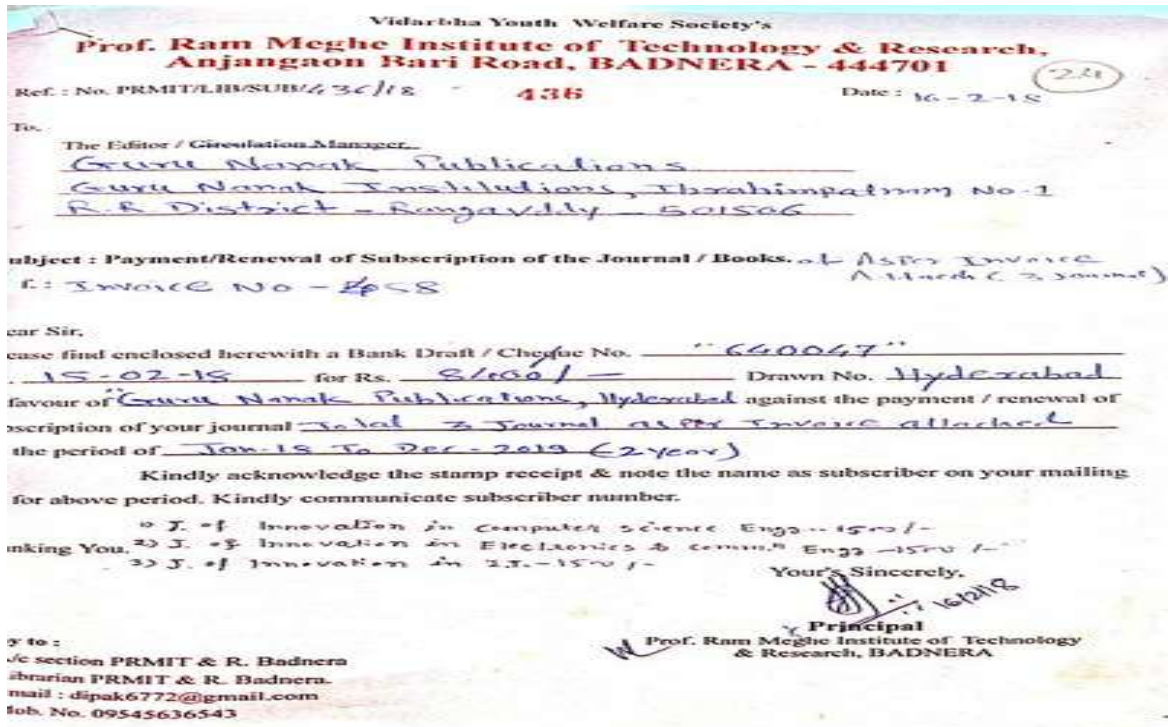 Vidarbha Youth Welfare Society's
Prof. Ram Meghe Institute of Technology & Research,
Anjangaon Bari Road, BADNERA - 444701
24
Ref. : No. PRMIT/LIB/SUB/436/18 - 436 Date : 16-2-18
To,
The Editor / Circulation Manager
Guru Nanak Publications
Guru Nanak Institutions, Ibrahimpatnam No-1
R.R District - Rangareddy - 501506
ubject : Payment/Renewal of Subscription of the Journal / Books. Invoice
f. : Invoice No - 458
ear Sir,
ease find enclosed herewith a Bank Draft / Cheque No. "640047"
15-02-18 for Rs. Drawn No. Hyderabad
favour of "Guru Nanak Publications, Hyderabad against the payment / renewal of
oscription of your journal Total 3 Journal as Per Invoice attached
the period of Jan-18 To Dec-2019 (2 year)
Kindly acknowledge the stamp receipt & note the name as subscriber on your mailing
for above period. Kindly communicate subscriber number.
1) J. of Innovation in Computer Science Engg - 1500/-
anking You, 2) J. of Innovation in Electronics & commn Engg - 1500/-
3) J. of Innovation in I.T. - 1500/-
Your's Sincerely,
16/2/18
Principal
Prof. Ram Meghe Institute of Technology
& Research, BADNERA
y to :
/c section PRMIT & R. Badnera
ibrarian PRMIT & R. Badnera.
mail : dipak6772@gmail.com
Mob. No. 09545636543